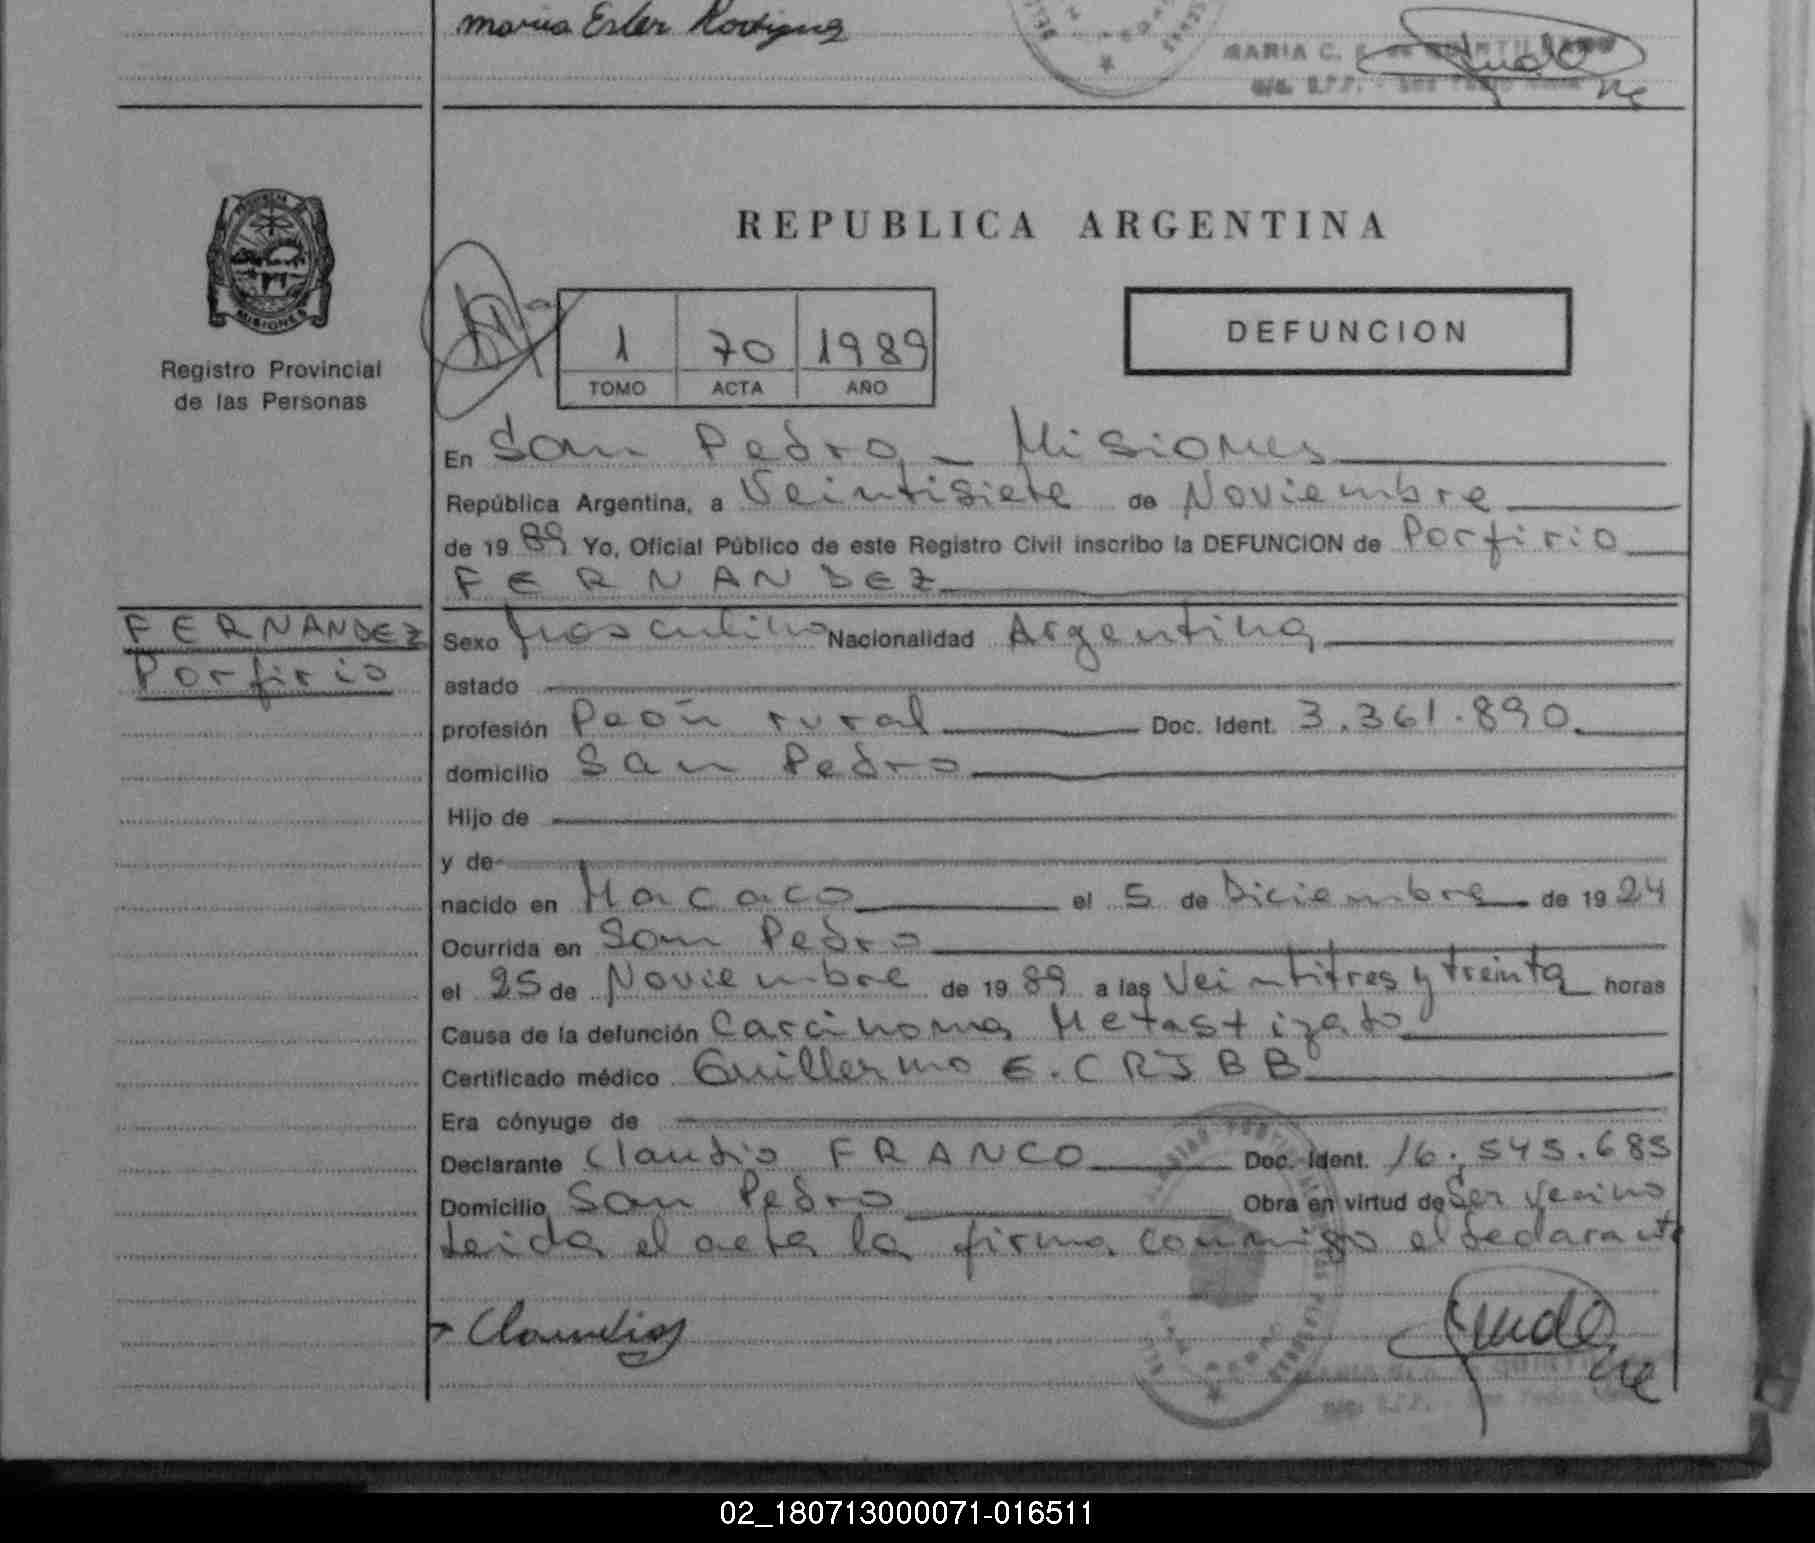 Maria Ester Rodriguez
MARIA C.
REPUBLICA ARGENTINA
MISIONES
Registro Provincial
de las Personas
1 70 1989
TOMO ACTA AÑO
DEFUNCION
En San Pedro - Misiones
República Argentina, a Veintisiete de Noviembre
de 19 89 Yo, Oficial Público de este Registro Civil inscribo la DEFUNCION de Porfirio
FERNANDEZ
FERNANDEZ
Porfirio
Sexo Masculino Nacionalidad Argentina
estado
profesión Peón rural Doc. Ident. 3.361.890
domicilio San Pedro
Hijo de
y de
nacido en Macaco el 5 de Diciembre de 19 24
Ocurrida en San Pedro
el 25 de Noviembre de 19 89 a las Veintitres y treinta horas
Causa de la defunción Carcinoma Metastizato
Certificado médico Guillermo E. CRIBB
Era cónyuge de
Declarante Claudio FRANCO Doc. Ident. 16.545.685
Domicilio San Pedro Obra en virtud de Ser Vecino
Leida el acta la firma conmigo el Declarante
Claudio
02_180713000071-016511